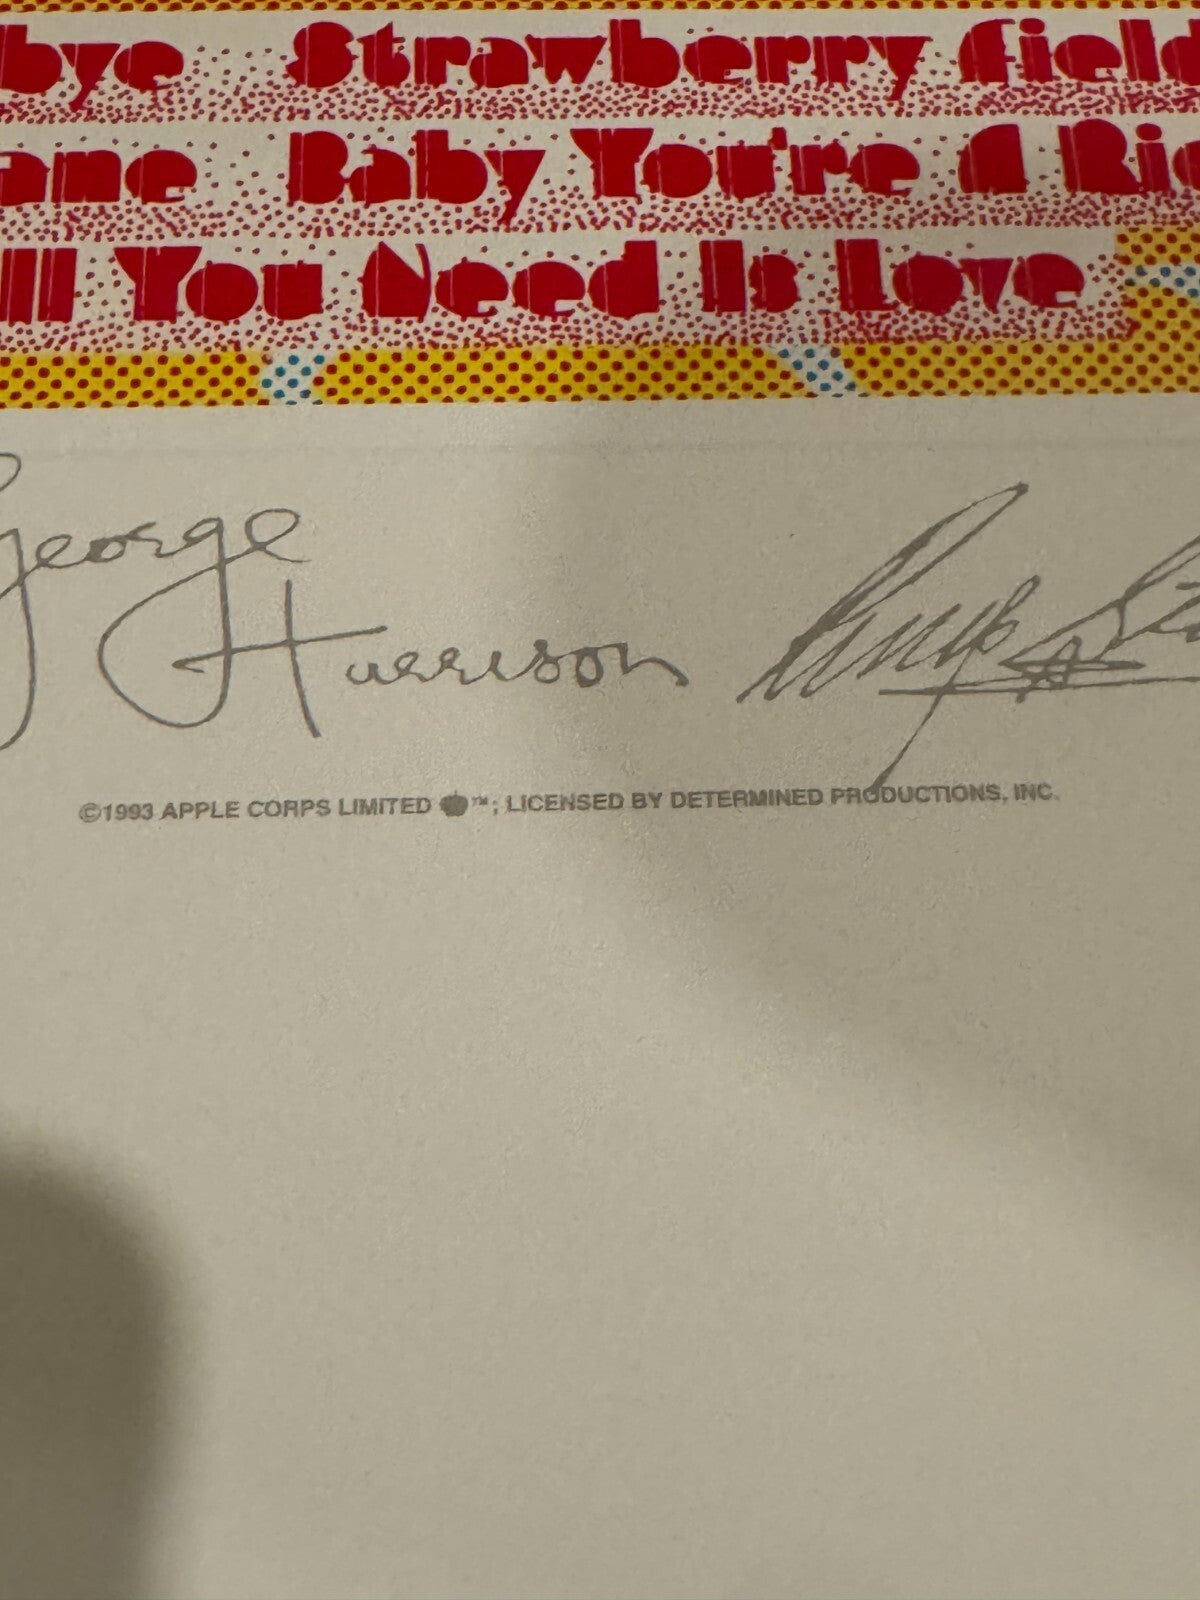 bye Strawberry Field
ane Baby You're A Ric
ll You Need Is Love
George
Harrison
Ringo Sta
©1993 APPLE CORPS LIMITED ™; LICENSED BY DETERMINED PRODUCTIONS, INC.